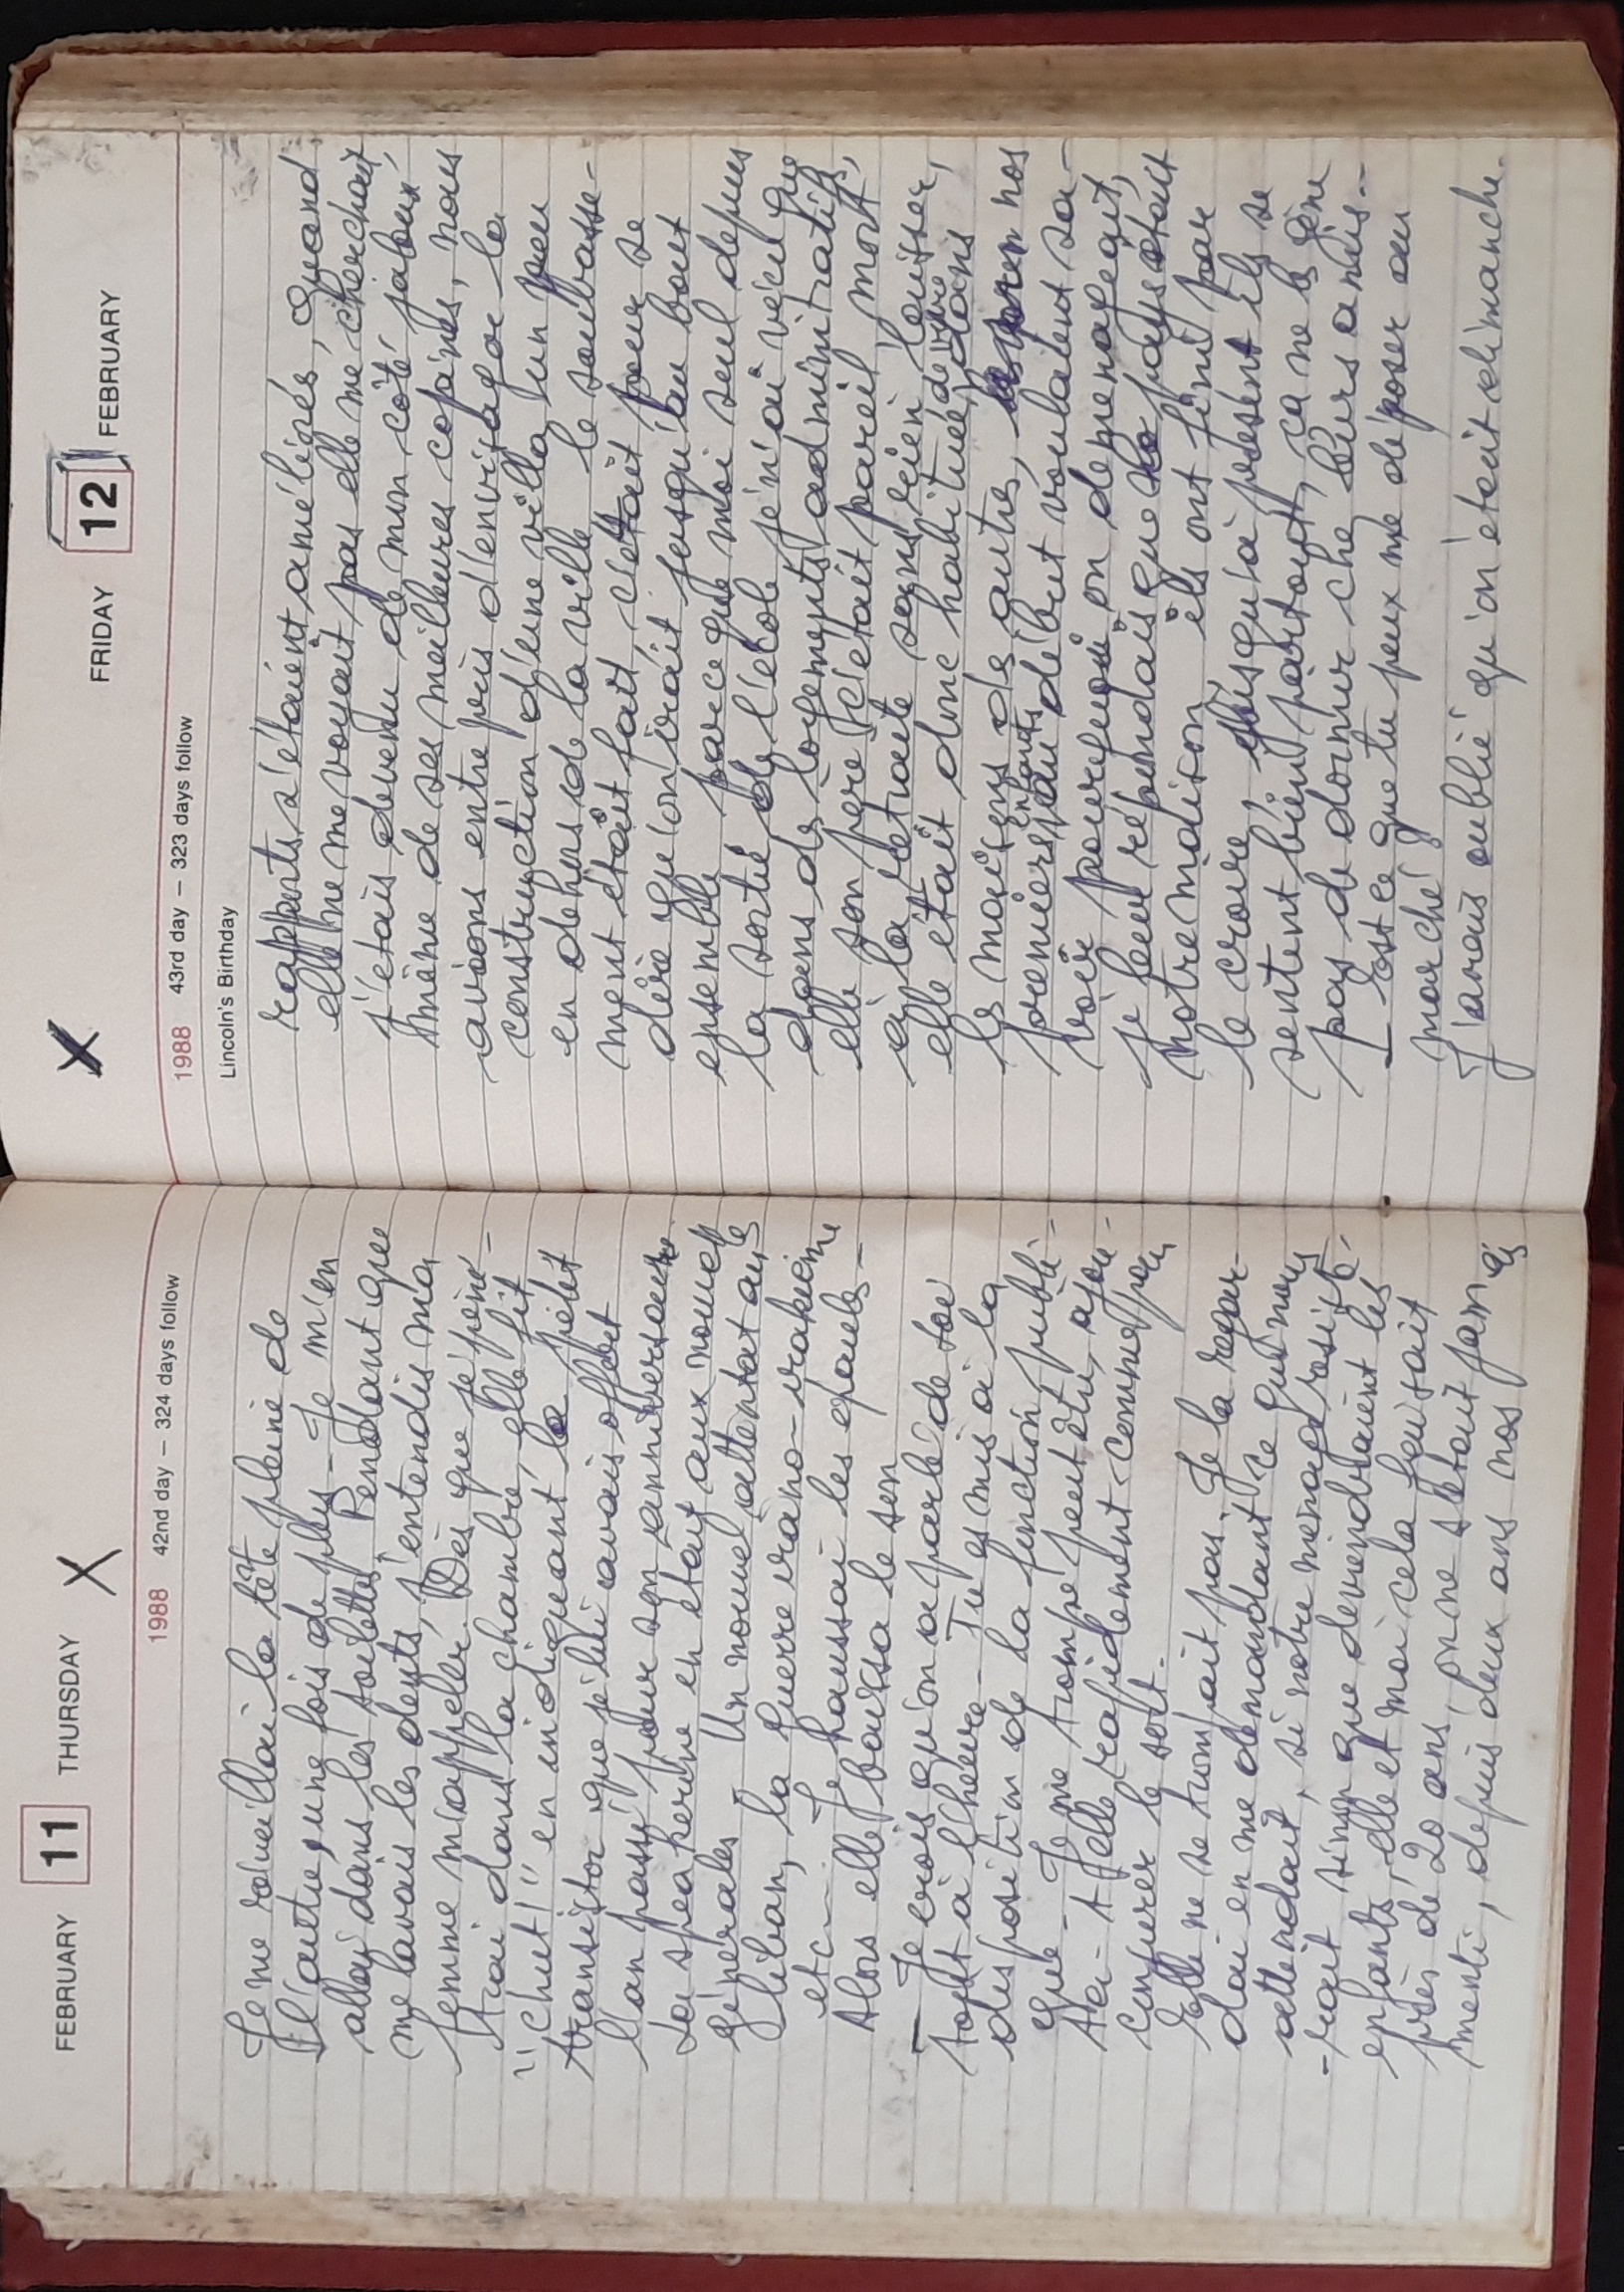 FEBRUARY 11 THURSDAY
1988 42nd day – 324 days follow
Je me réveillai la tête pleine de
l'autre, une fois de plus - Je m'en
allai dans les toilettes. Pendant que
me lavais les dents, j'entendis ma
femme m'appeler. Dès que je péné-
trai dans la chambre, elle fit
"chut!" en indiquant le petit
transistor que je lui avais offert
l'an passé pour son anniversaire
La speakerine en était aux nouvelles
générales - Un nouvel attentat au
Liban, la guerre irano-irakienne
etc - Je haussai les épaules -
Alors elle baissa le son
- Je crois qu'on a parlé de toi
tout à l'heure - Tu es mis à la
disposition de la fonction publi-
que - Je me trompe peut être, ajou-
ta-t-elle rapidement comme pour
conjurer le sort.
Elle ne se trompait pas. Je la regar-
dai en me demandant ce qui nous
attendait, si notre ménage résiste-
-rait sinon que deviendraient les
enfants, elle et moi cela faisait
près de 20 ans, on ne s'était jamais
menti, depuis deux ans nos
FRIDAY 12 FEBRUARY
1988 43rd day – 323 days follow
Lincoln's Birthday
rapports s'étaient améliorés, quand
elle ne me voyait pas elle me cherchait,
j'étais devenu de mon côté jaloux
même de ses meilleures copines, nous
avions entre pris d'envisager la
construction d'une villa un peu
en dehors de la ville le soubasse-
ment était fait, c'était pour se
dire qu'on irait jusqu'au bout
ensemble parce que moi seul depuis
la sortie de l'école je n'ai vécu que
dans des logements administratifs,
elle son père c'était pareil, mort
à la retraite sans rien laisser,
elle était donc habituée de vivre dans
les maisons des autres, nos
premiers enfants au début voulaient sa-
voir pourquoi on déménageait,
je leur répondais que le pays était
notre maison, ils ont fini par
le croire, jusqu'à présent ils se
sentent bien partout, ça ne les gêne
pas de dormir che leurs amis..
- Est ce que tu peux me déposer au
marché ?
J'avais oublié qu'on était dimanche.